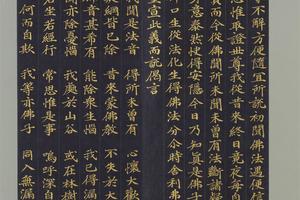 不解方便隨宜所說初聞佛法遇便信
思惟取證世尊我從昔來終日竟夜每自
責而今從佛聞所未聞未曾有法斷諸疑
意泰然快得安隱今日乃知真是佛子
口生從法化生得佛法分爾時舍利弗
重宣此義而說偈言
聞是法音 得所未曾有 心懷大歡
網皆已除 昔來蒙佛教 不失於大
音甚希有 能除眾生惱 我已得漏
亦除憂惱 我處於山谷 或在林樹
若坐若經行 常思惟是事 嗚呼深自
何而自欺 我等亦佛子 同入無漏